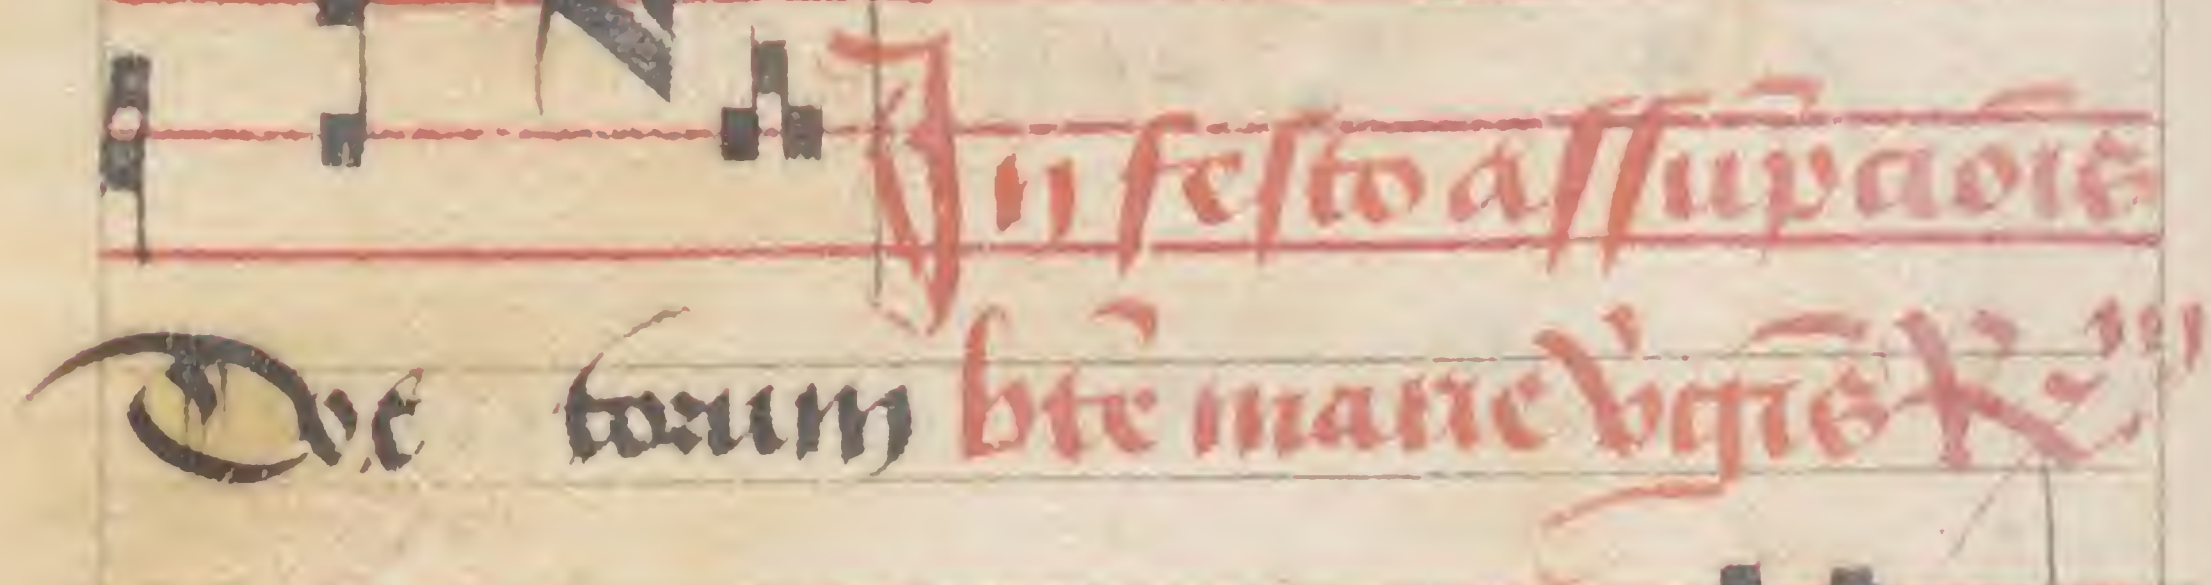 In festo assūpciōis
Doc torum btē marie v̓gīs ℟